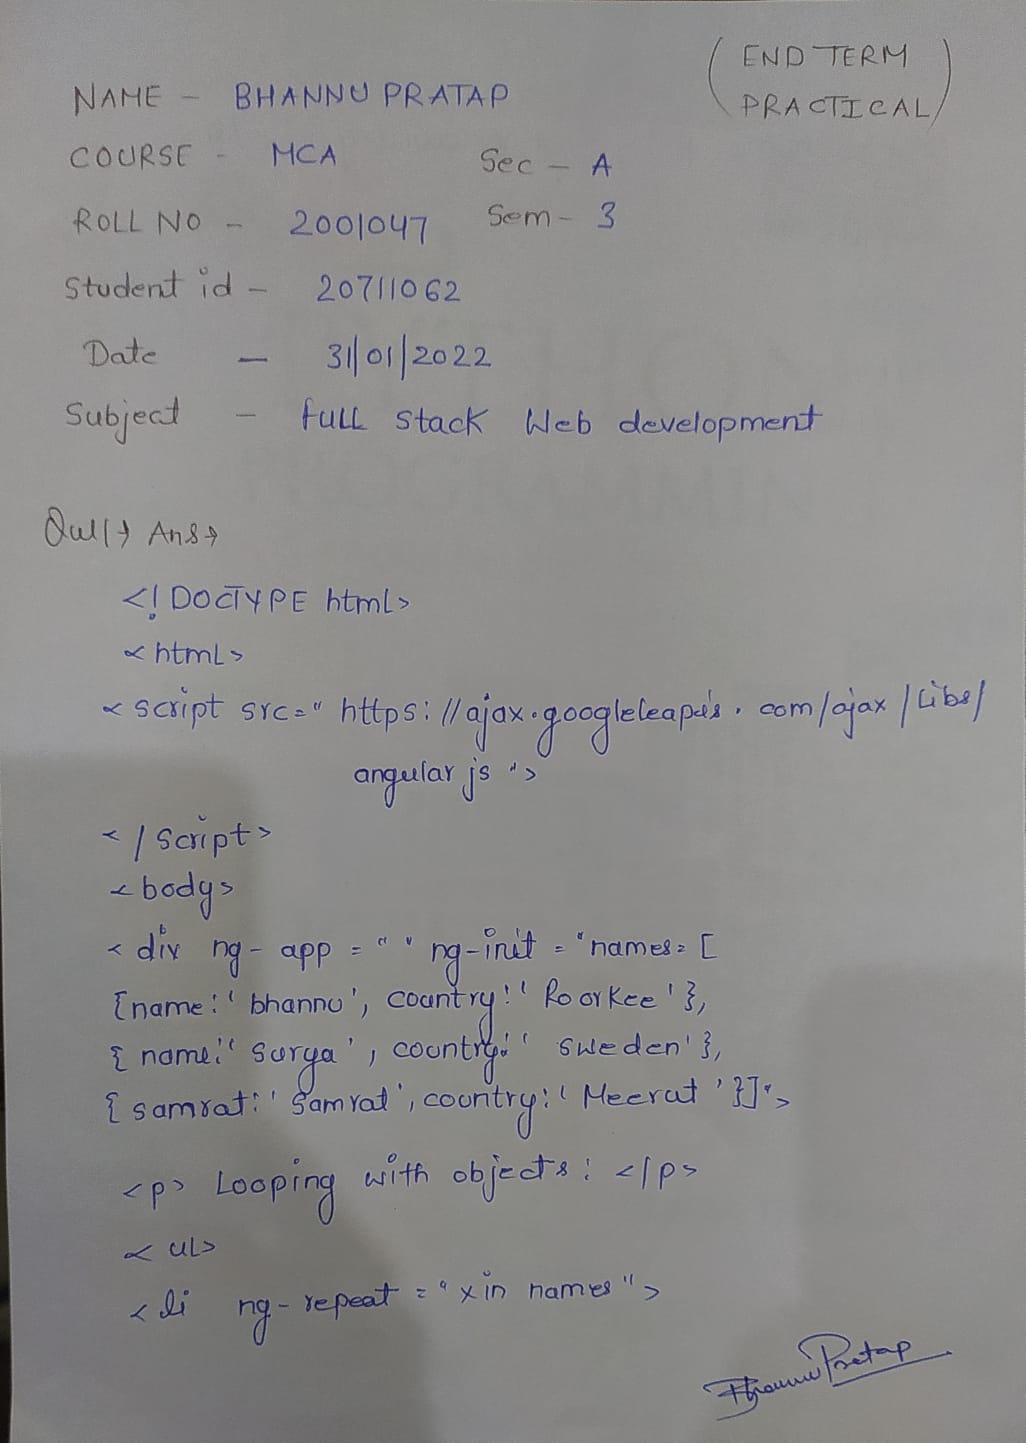 (END TERM
PRACTICAL)
NAME - BHANNU PRATAP
COURSE - MCA Sec - A
ROLL NO - 2001047 Sem - 3
Student id - 20711062
Date - 31/01/2022
Subject - full stack Web development
Ans →
<!DOCTYPE html>
<html>
<script src=" https://ajax.googleleapis.com/ajax/libs/
angular js ">
</script>
<body>
<div ng-app = " " ng-init = "names= [
{name:' bhannu', country:' Roorkee '},
{ name:' surya', country:' sweden'},
{ samrat:' Samrat', country:' Meerut '}]">
<p> Looping with objects: </p>
<ul>
<li ng-repeat = "x in names ">
Bhannu Pratap